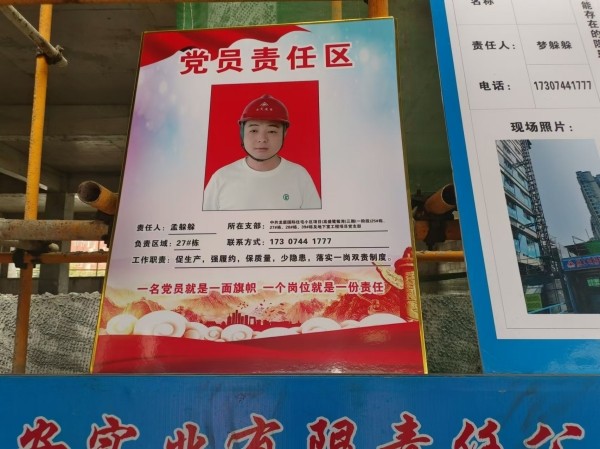 党员责任区
责任人：孟躲躲
所在支部：
负责区域：27#栋
联系方式：173 0744 1777
工作职责：促生产，强履约，保质量，少隐患，落实一岗双责制度。
一名党员就是一面旗帜 一个岗位就是一份责任
名称
责任人：
梦躲躲
电话：
17307441777
现场照片：
能存在的隐
安实业有限责任公